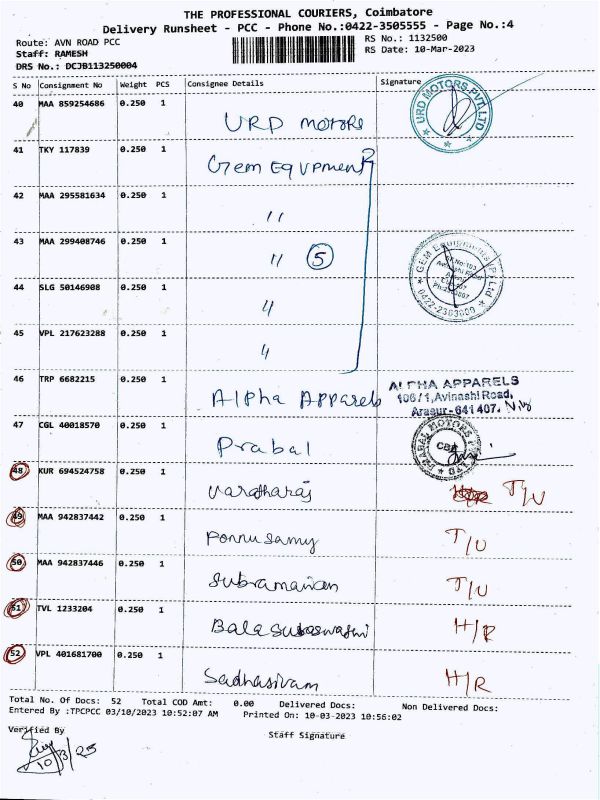 THE PROFESSIONAL COURIERS, Coimbatore
Delivery Runsheet - PCC - Phone No.:0422-3505555 - Page No.:4
Route: AVN ROAD PCC
RS No.: 1132500
Staff: RAMESH
RS Date: 10-Mar-2023
DRS No.: DCJB113250004
S No Consignment No Weight PCS Consignee Details Signature
40 MAA 859254686 0.250 1 URD MOTORS URD MOTORS PVT LTD
41 TKY 117839 0.250 1 Gem Equpment
42 MAA 295581634 0.250 1 "
43 MAA 299408746 0.250 1 " 5
GEM Equipments (P) Ltd
0422-2363800
44 SLG 50146908 0.250 1 "
45 VPL 217623288 0.250 1 "
46 TRP 6682215 0.250 1 Alpha Apparels ALPHA APPARELS
106/1,Avinashi Road,
Arasur-641 407.
47 CGL 40018570 0.250 1 Prabal PRABAL MOTORS
CBE
48 KUR 694524758 0.250 1 Varatharaj T/U
49 MAA 942837442 0.250 1 Ponnusamy T/U
50 MAA 942837446 0.250 1 Subramanian T/U
51 TVL 1233204 0.250 1 H/R
52 VPL 401681700 0.250 1 Sadhasivam H/R
Total No. Of Docs: 52 Total COD Amt: 0.00 Delivered Docs: Non Delivered Docs:
Entered By :TPCPCC 03/10/2023 10:52:07 AM Printed On: 10-03-2023 10:56:02
Verified By
Staff Signature
10/3/23